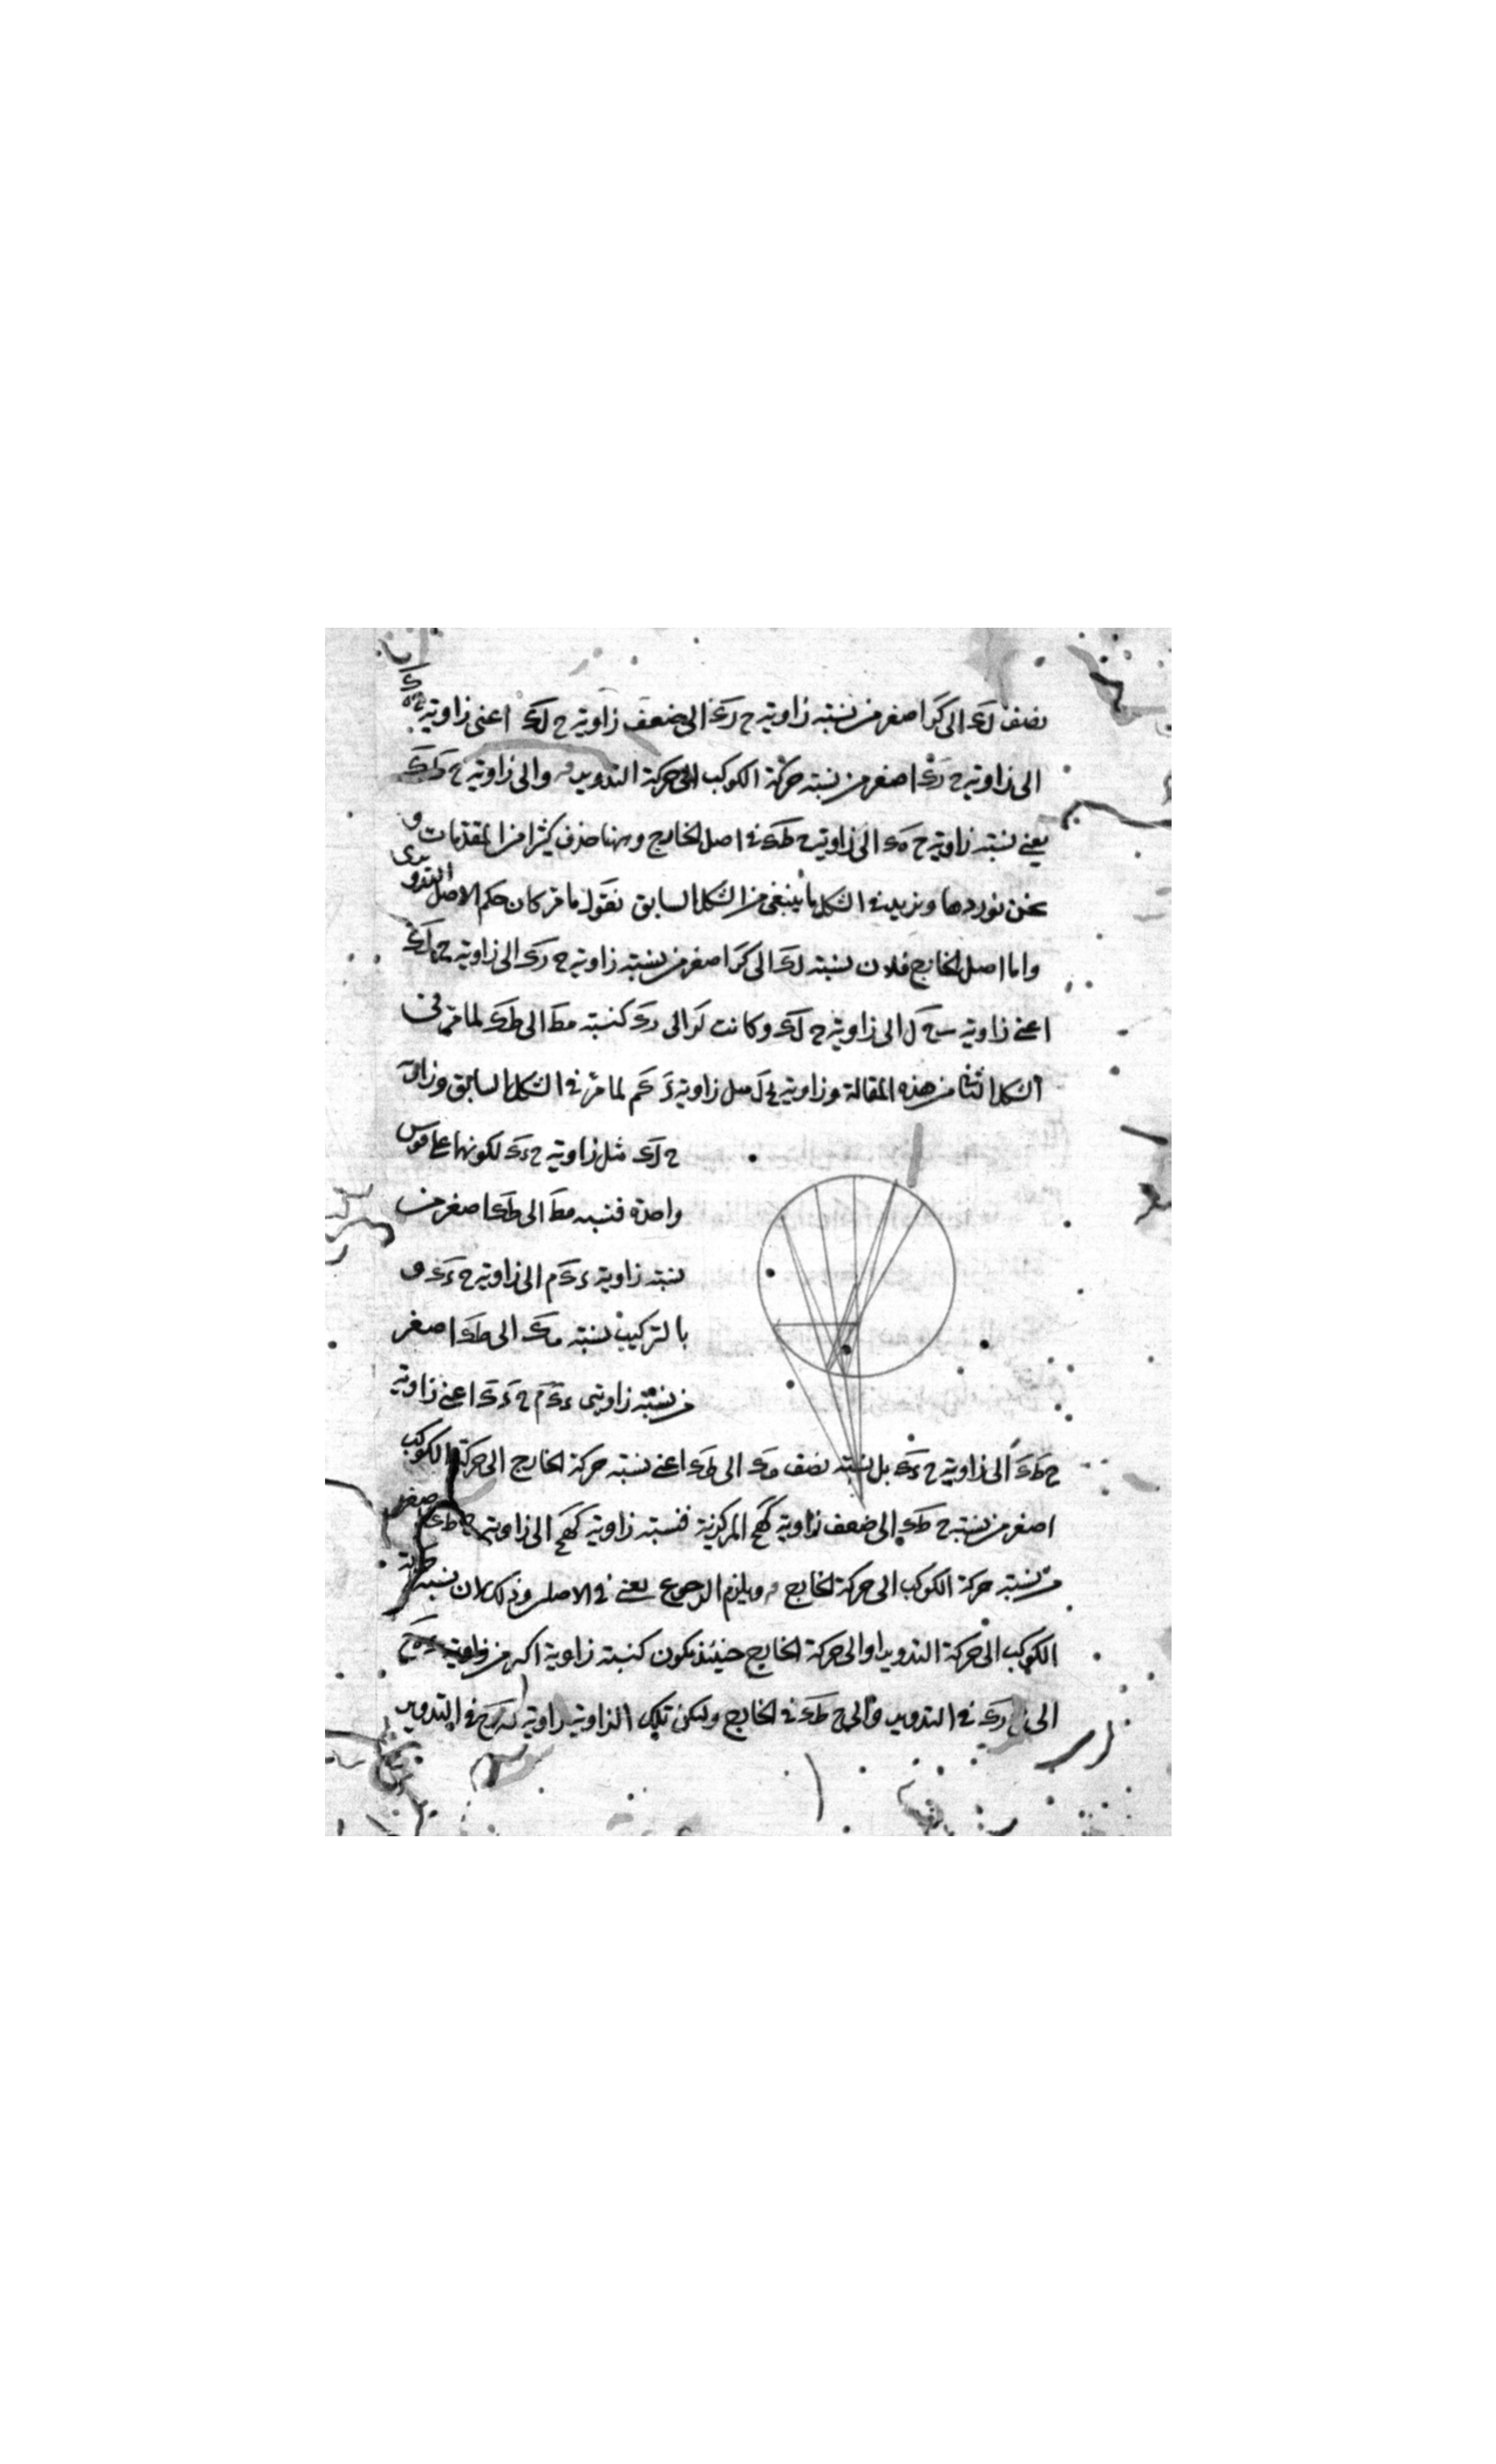 نصف لك الى كر اصغر من نسبة زاوية ح رك الى ضعف زاوية ح لك اعنى زاوية
الى زاوية ح رك اصغر من نسبة حركة الكوكب الى حركة التدوير والى زاوية ح طك
يعنى نسبة زاوية ح ه‍ك الى زاوية ح طك فى اصل الخارج وههنا حذف كثيرا من المقدمات و
نحن نوردها ونزيد فى الشكل ما ينبغى من الشكل السابق نقول ما مر كان حكم الاصل التدويرى
واما اصل الخارج فلان نسبة لك الى كر اصغر من نسبة زاوية ح رك الى زاوية ح لك
اعنى زاوية ل الى زاوية ح لك وكانت لر الى رك كنسبة مط الى طك لما مر فى
الشكل الثانى من هذه المقالة وزاوية ل مثل زاوية ء كم لما مر فى الشكل السابق وزاوية
ح لك مثل زاوية ح ءك لكونها على قوس
واحدة فنسبة مط الى طك اصغر من
نسبة زاوية ء كم الى زاوية ح ءك و
بالتركيب نسبة مك الى طك اصغر
من نسبة زاويتى ء كم ح ءك اعنى زاوية
ح طك الى زاوية ح ءك بل نسبة نصف مك الى طك اعنى نسبة حركة الخارج الى حركة الكوكب
اصغر من نسبة ح طك الى ضعف زاوية كهح المركزية فنسبة زاوية كهح الى زاوية ح طك اصغر
من نسبة حركة الكوكب الى حركة الخارج ويلزم الرجوع يعنى فى الاصلين وذلك لان نسبة حركة
الكوكب الى حركة التدوير او الى حركة الخارج حينئذ تكون كنسبة زاوية اكبر من زاوية
الى رك فى التدوير والى ح طك فى الخارج ولتكن تلك الزاوية زاوية فى التدوير